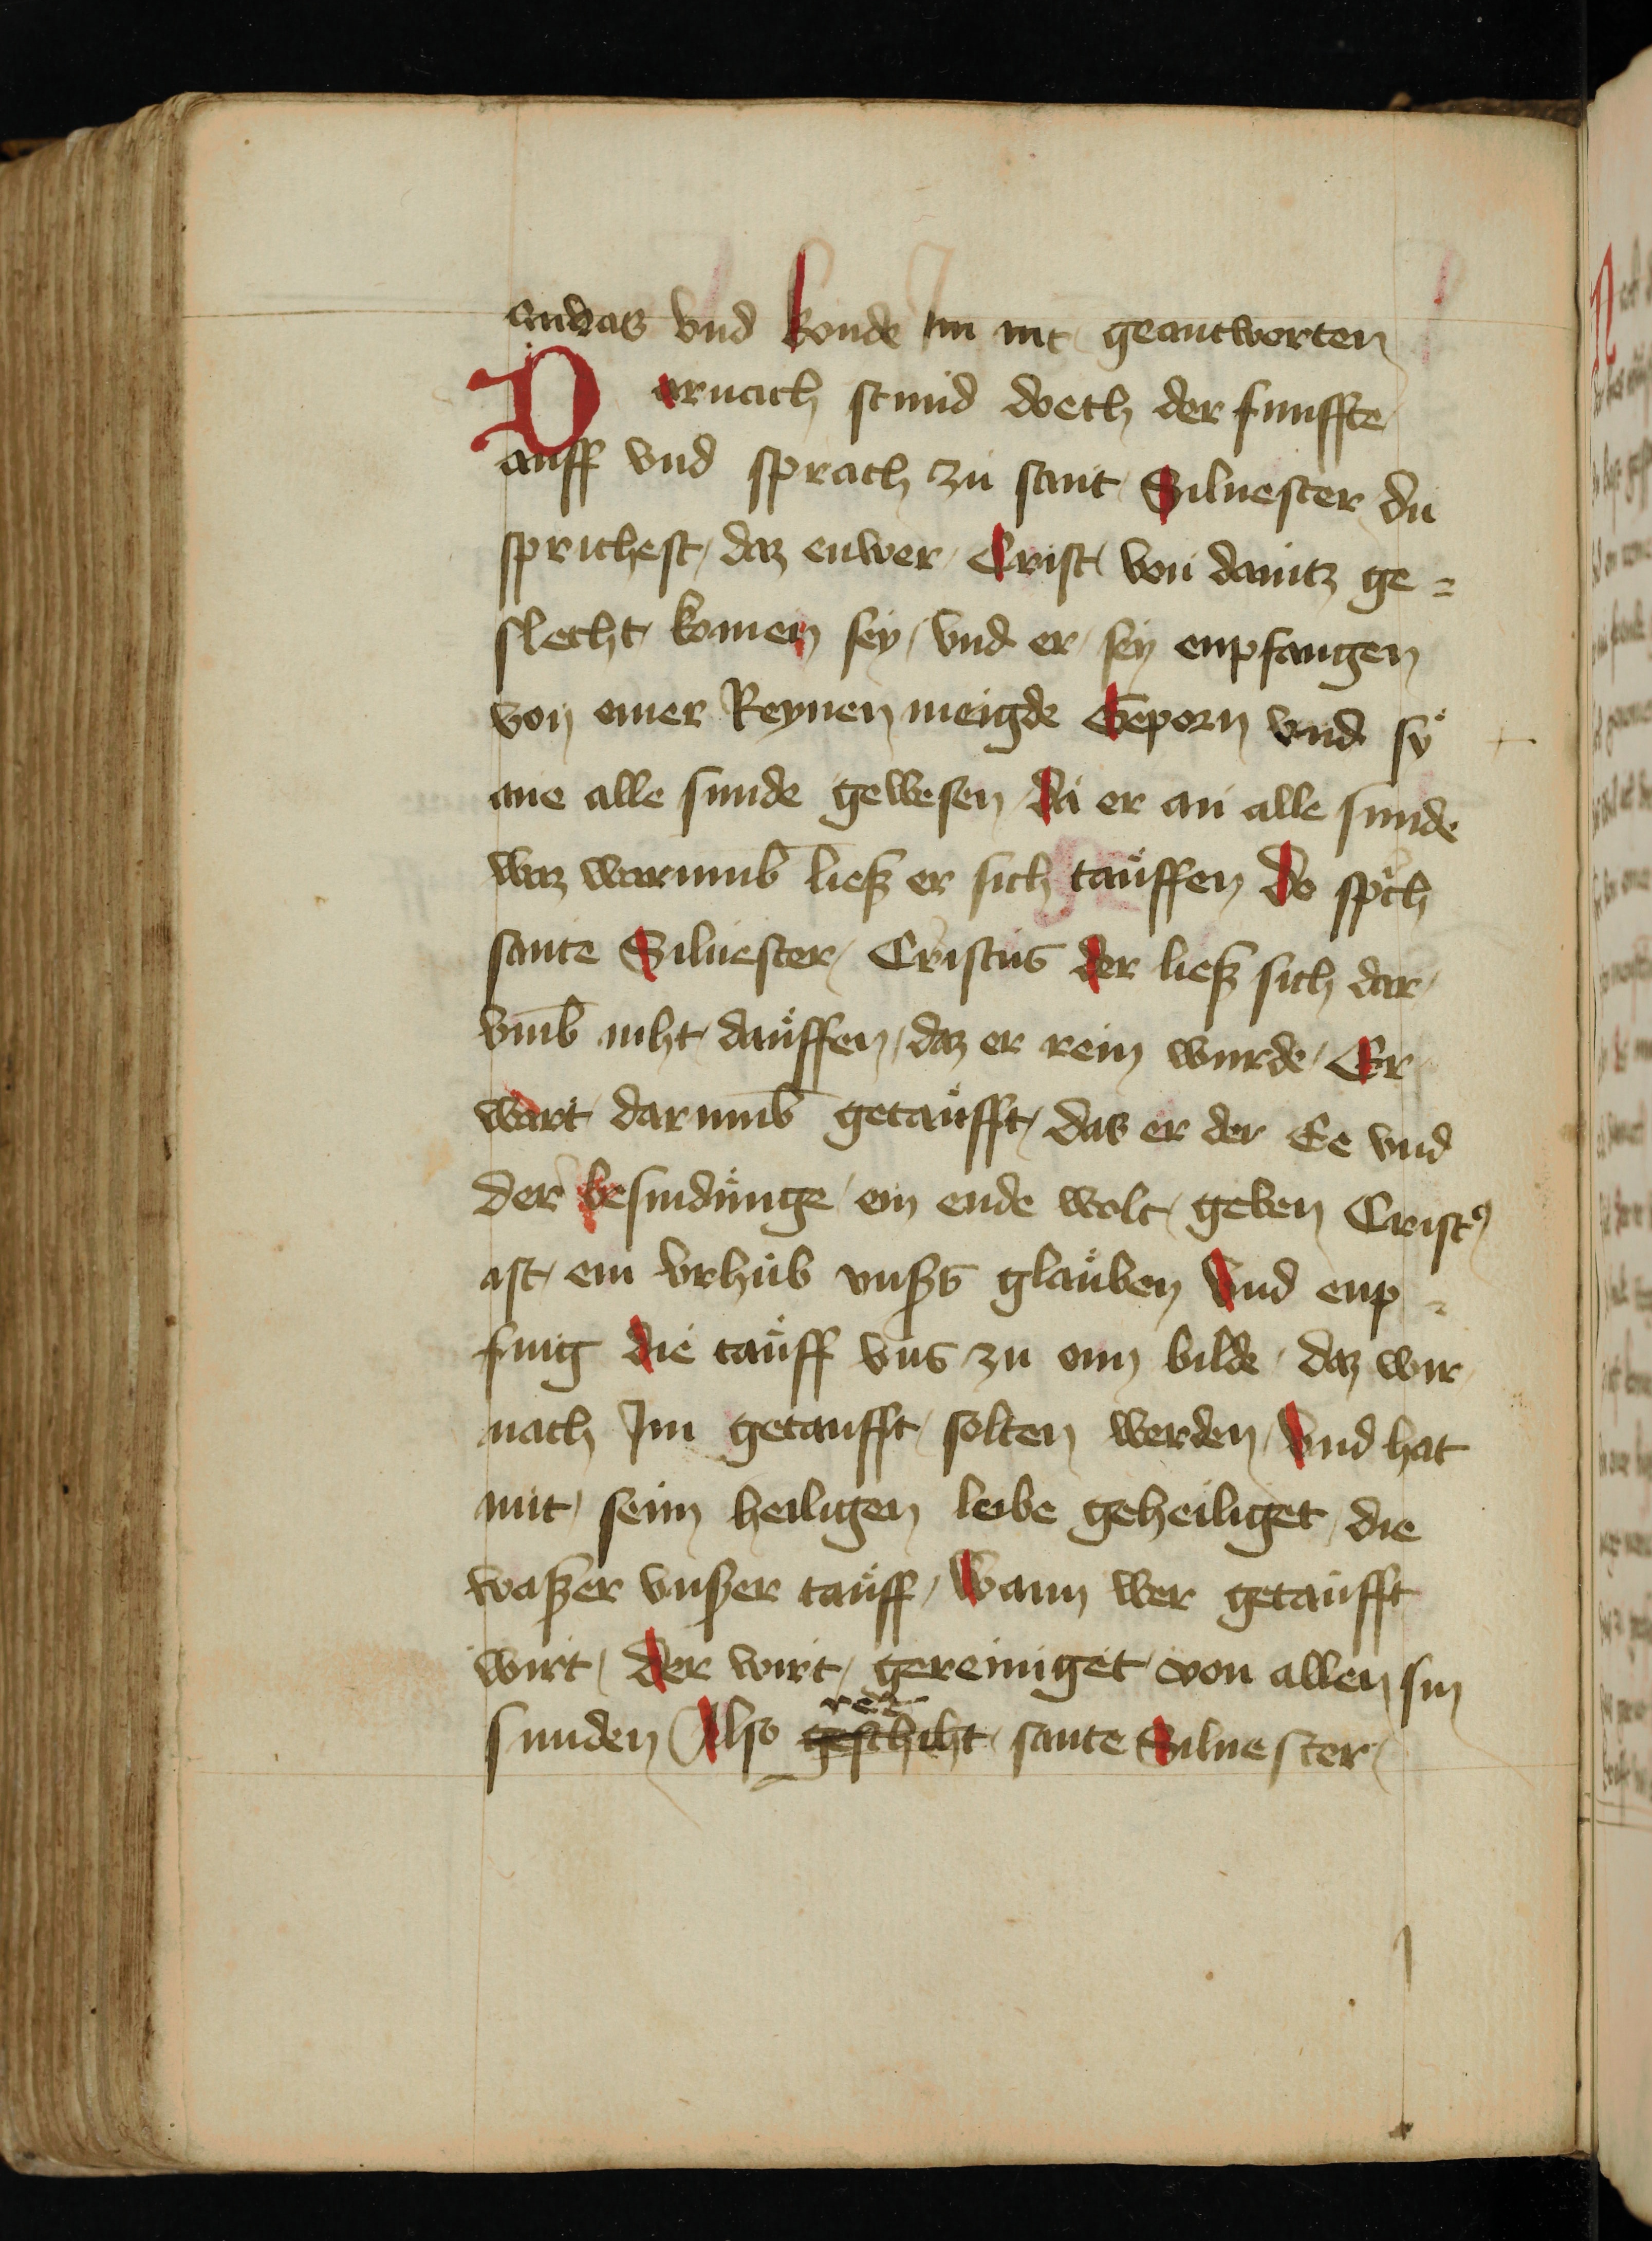 andas vnd konde im nit geantworten
Darnach stund doeth der funffte
auff vnd sprach zu sant Siluester du
sprichest daz euwer Crist von dauitz ge=
slecht komen sey vnd er sey enpfangen
von einer Reynen meigde Geporn vnd sy
ane alle sunde gewesen da er an alle sunde
waz warumb ließ er sich tauffen do sprch
sante Siluester Cristus der ließ sich dar
vmb niht dauffen daz er rein wurde Er
wart darumb getaufft das er der Ee vnd
der besnidunge ein ende wolt geben Cristꝰ
ist ein vrhub vnßs glauben Vnd enp=
fing die tauff vns zu ein bilde daz wir
nach Im getaufft solten werden Vnd hat
mit seim heiligen leibe geheiliget die
waßer vnßer tauff Wann wer getaufft
wirt der wirt gereiniget von allen sin
sunden Also geschiht sante Siluester